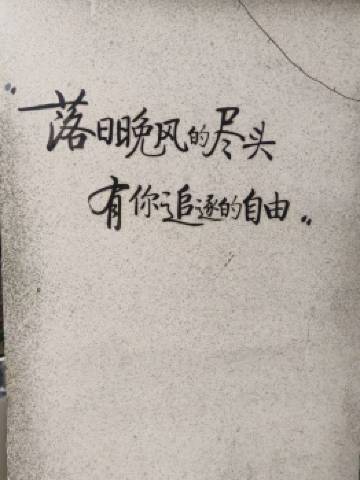 "落日晚风的尽头
有你追逐的自由"